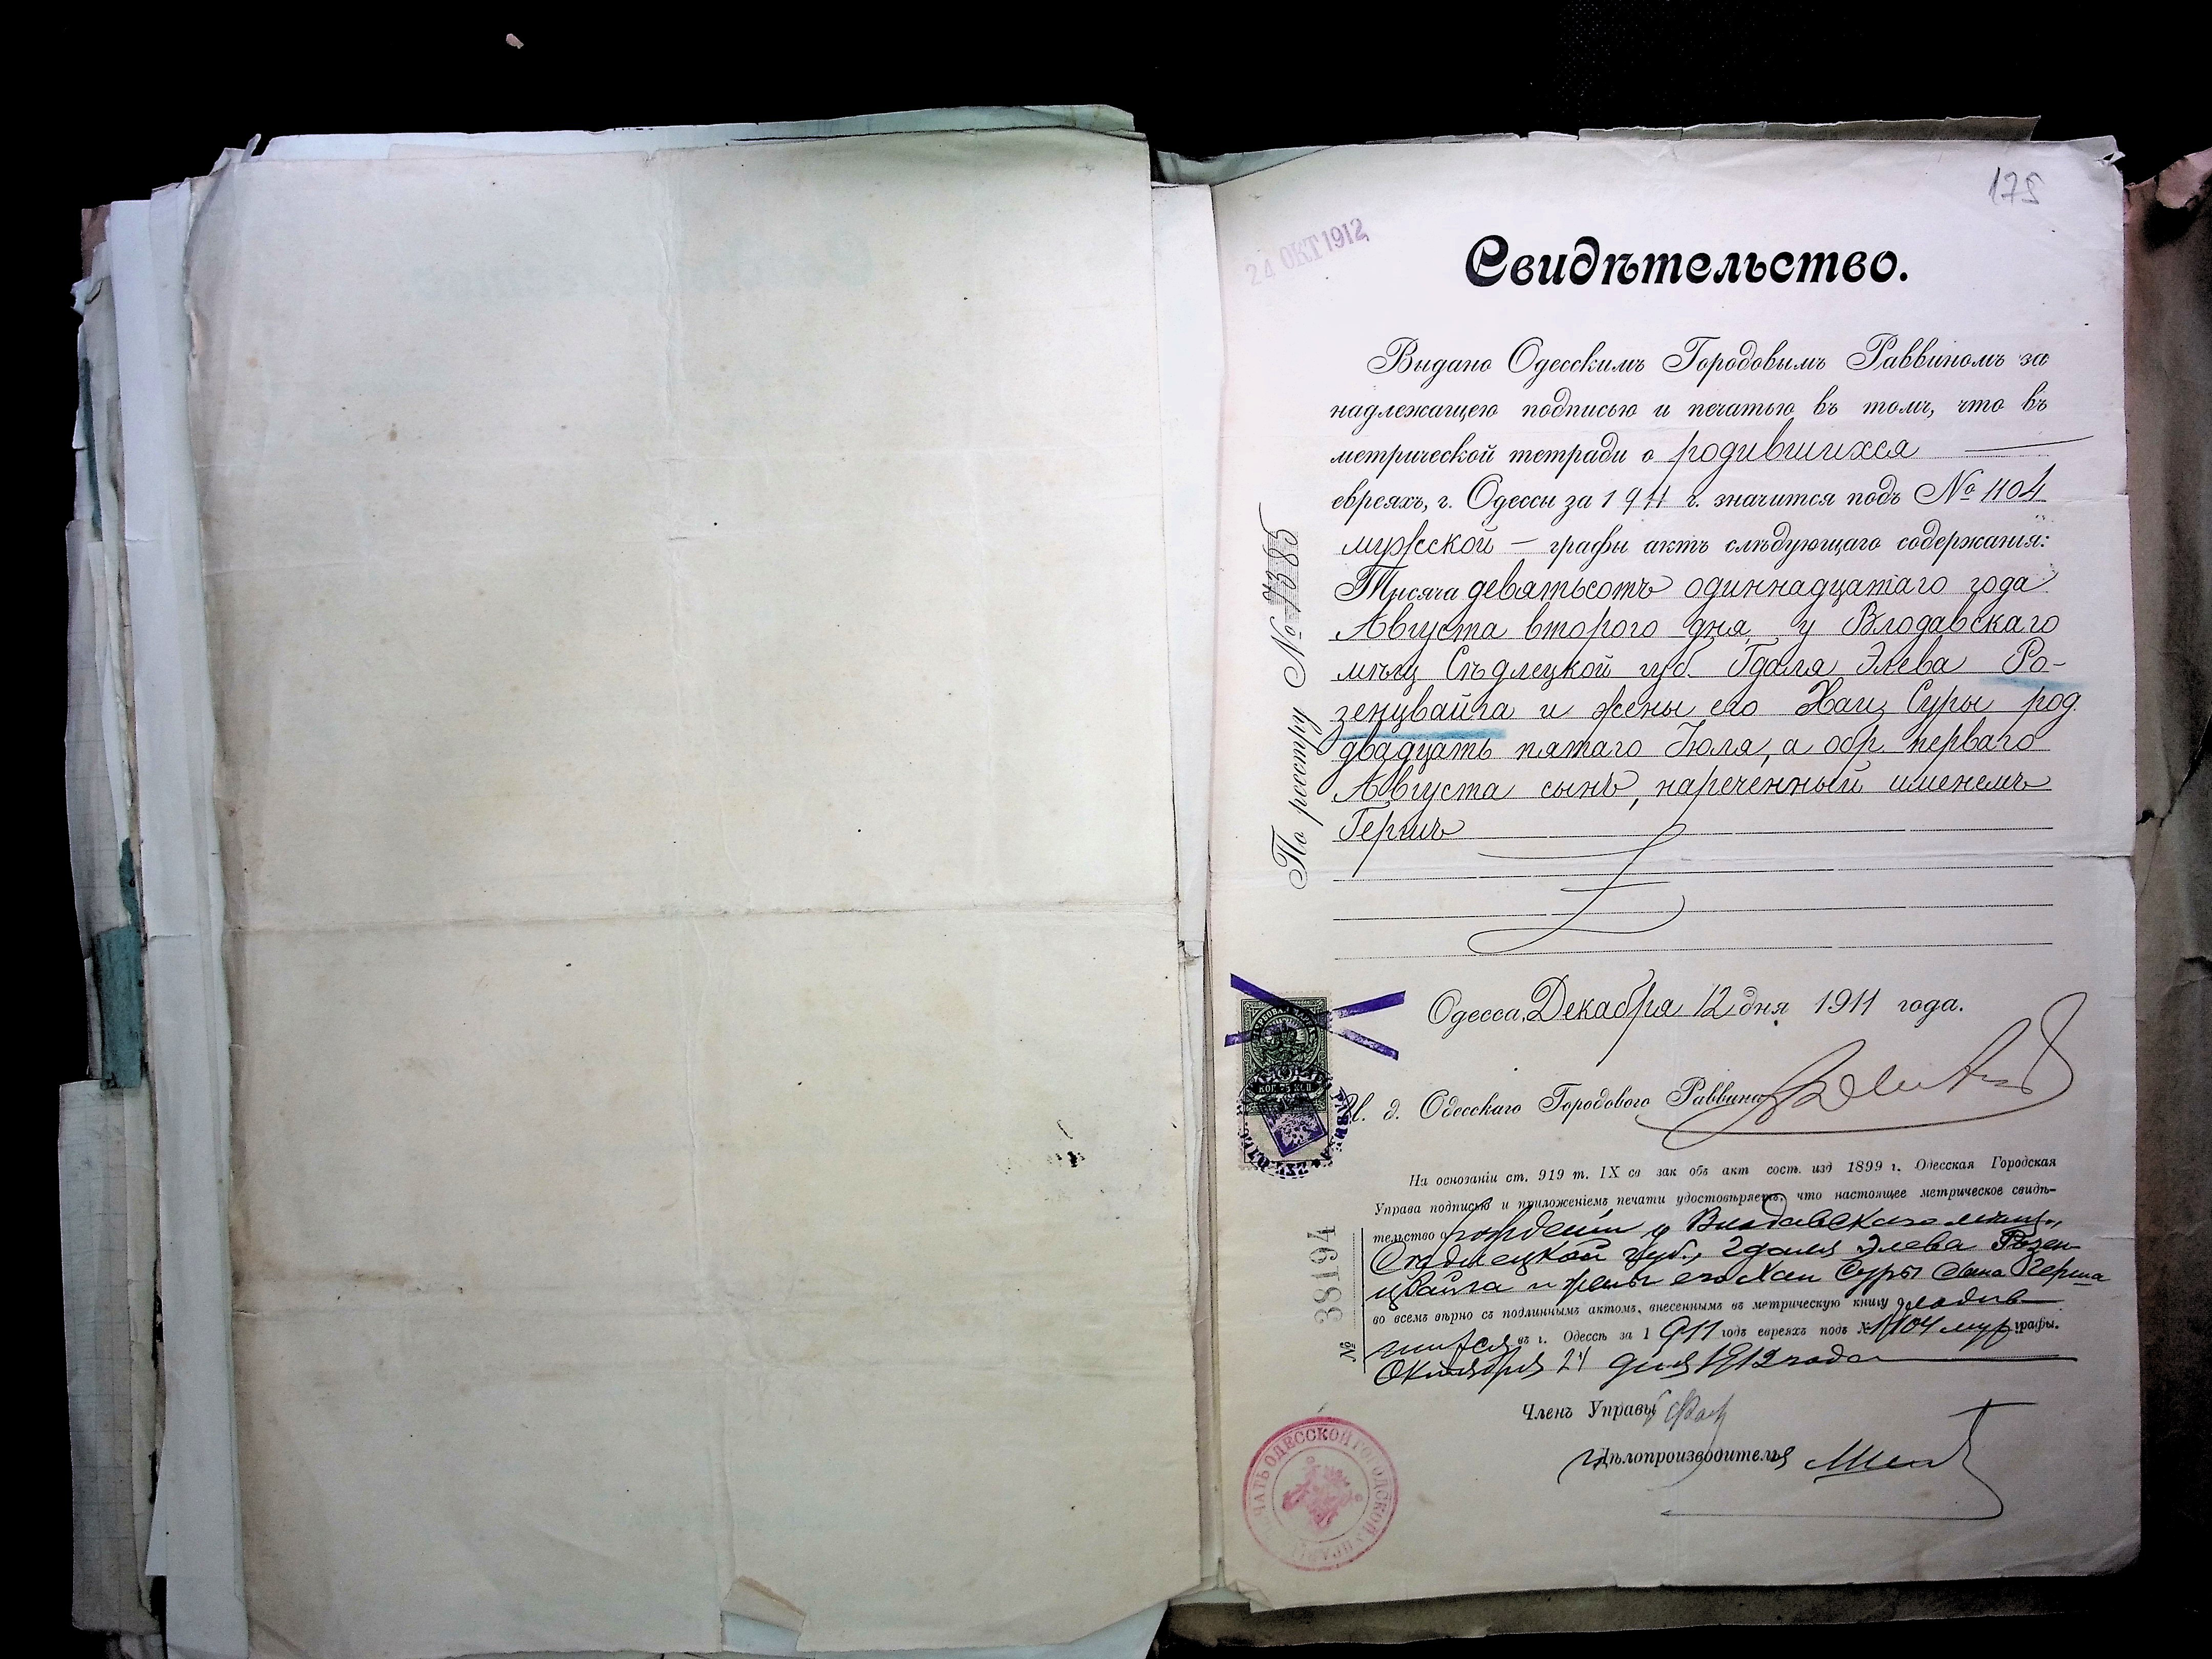 175
24 ОКТ 1912
Свидѣтельство.
Выдано Одесскимъ Городовымъ Раввиномъ за
надлежащею подписью и печатью въ томъ, что въ
метрической тетради о родившихся
евреяхъ, г. Одессы за 1911 г. значится подъ № 1104
мужской — графы актъ слѣдующаго содержанія:
Тысяча девятьсотъ одиннадцатаго года
Августа второго дня, у Влодавскаго
мѣщ Сѣдлецкой губ. Гдаля Элева Ро-
зенцвайга и жены его Хаи Суры род.
двадцать пятаго Іюля, а обр. перваго
Августа сынъ, нареченный именемъ
Гершъ
По реестру № 7385
Одесса, Декабря 12 дня 1911 года.
И. д. Одесскаго Городового Раввина
КОП 75 КОП
На основаніи ст. 919 т. IX св зак объ акт сост. изд 1899 г. Одесская Городская
Управа подписью и приложеніемъ печати удостовѣряетъ, что настоящее метрическое свидѣ-
тельство о рожденіи у Влодавскаго мѣщ.,
Сѣдлецкой губ., Гдаля Элева Розен-
цвайга и жены его Хаи Суры сына Герша
во всемъ вѣрно съ подлиннымъ актомъ, внесеннымъ въ метрическую книгу о родив-
шихся въ г. Одессѣ за 1911 годъ евреяхъ подъ № 1104 муж графы.
Октября 24 дня 1912 года
№ 38194
Членъ Управы
Дѣлопроизводитель
ПЕЧАТЬ ОДЕССКОЙ ГОРОДСКОЙ УПРАВЫ